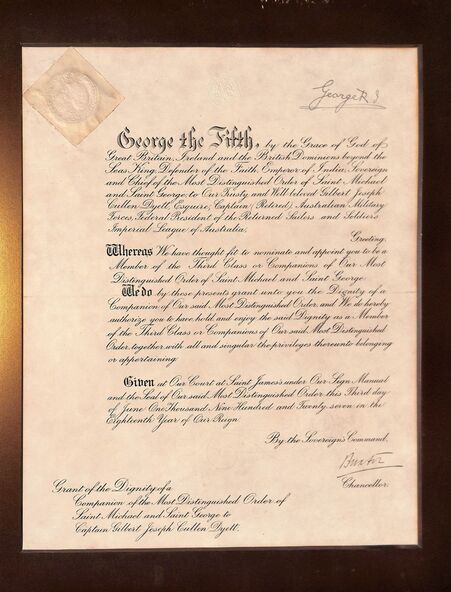 George R I
George the Fifth, by the Grace of God of
Great Britain, Ireland and the British Dominions beyond the
Seas King, Defender of the Faith, Emperor of India, Sovereign
and Chief of the Most Distinguished Order of Saint Michael
and Saint George, to Our Trusty and Well-beloved Gilbert Joseph
Cullen Dyett, Esquire, Captain (Retired), Australian Military
Forces, Federal President of the Returned Sailors and Soldiers
Imperial League of Australia.
Greeting,
Whereas We have thought fit to nominate and appoint you to be a
Member of the Third Class or Companions of Our Most
Distinguished Order of Saint Michael and Saint George
We do by these presents grant unto you the Dignity of a
Companion of Our said Most Distinguished Order, and We do hereby
authorize you to have, hold and enjoy the said Dignity as a Member
of the Third Class or Companions of Our said Most Distinguished
Order, together with all and singular the privileges thereunto belonging
or appertaining.
Given at Our Court at Saint James's under Our Sign Manual
and the Seal of Our said Most Distinguished Order this Third day
of June One Thousand Nine Hundred and Twenty seven in the
Eighteenth Year of Our Reign
By the Sovereign's Command,
Chancellor.
Grant of the Dignity of a
Companion of the Most Distinguished Order of
Saint Michael and Saint George to
Captain Gilbert Joseph Cullen Dyett.